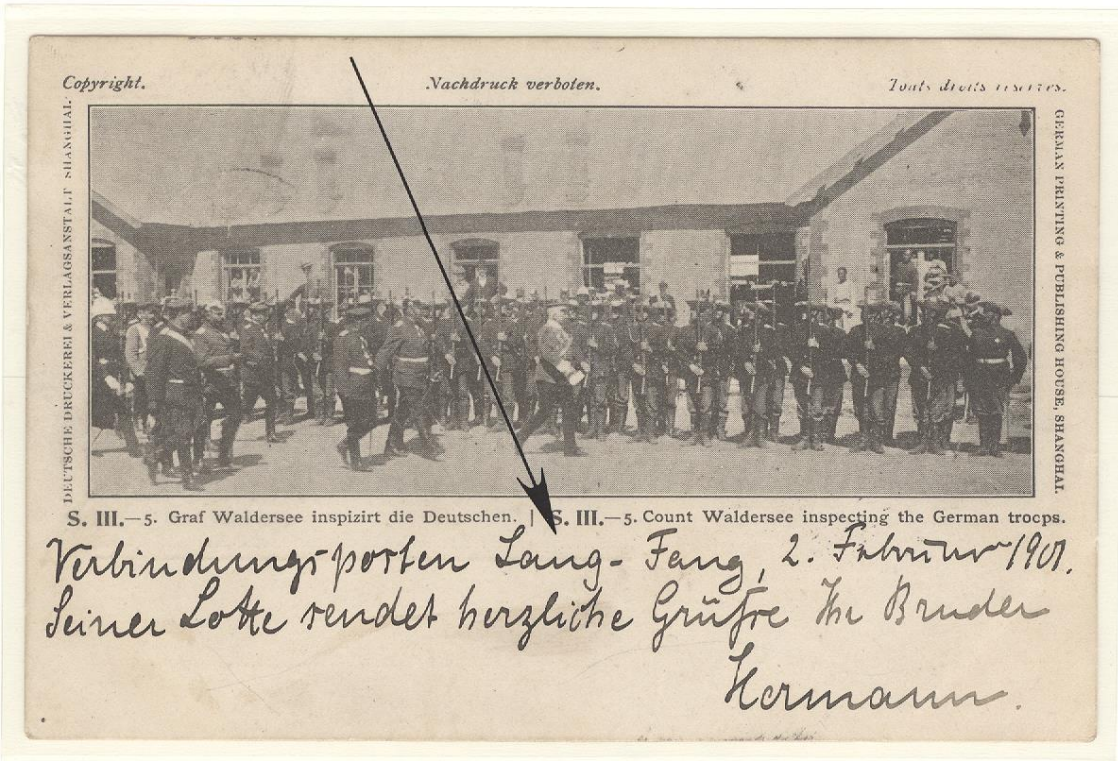 Copyright.
Nachdruck verboten.
Touts droits réservés.
DEUTSCHE DRUCKEREI & VERLAGSANSTALT SHANGHAI.
GERMAN PRINTING & PUBLISHING HOUSE, SHANGHAI.
S. III.—5. Graf Waldersee inspizirt die Deutschen. | S. III.—5. Count Waldersee inspecting the German troops.
Verbindungsposten Lang-Fang, 2. Februar 1901.
Seiner Lotte sendet herzliche Grüße Ihr Bruder
Hermann.